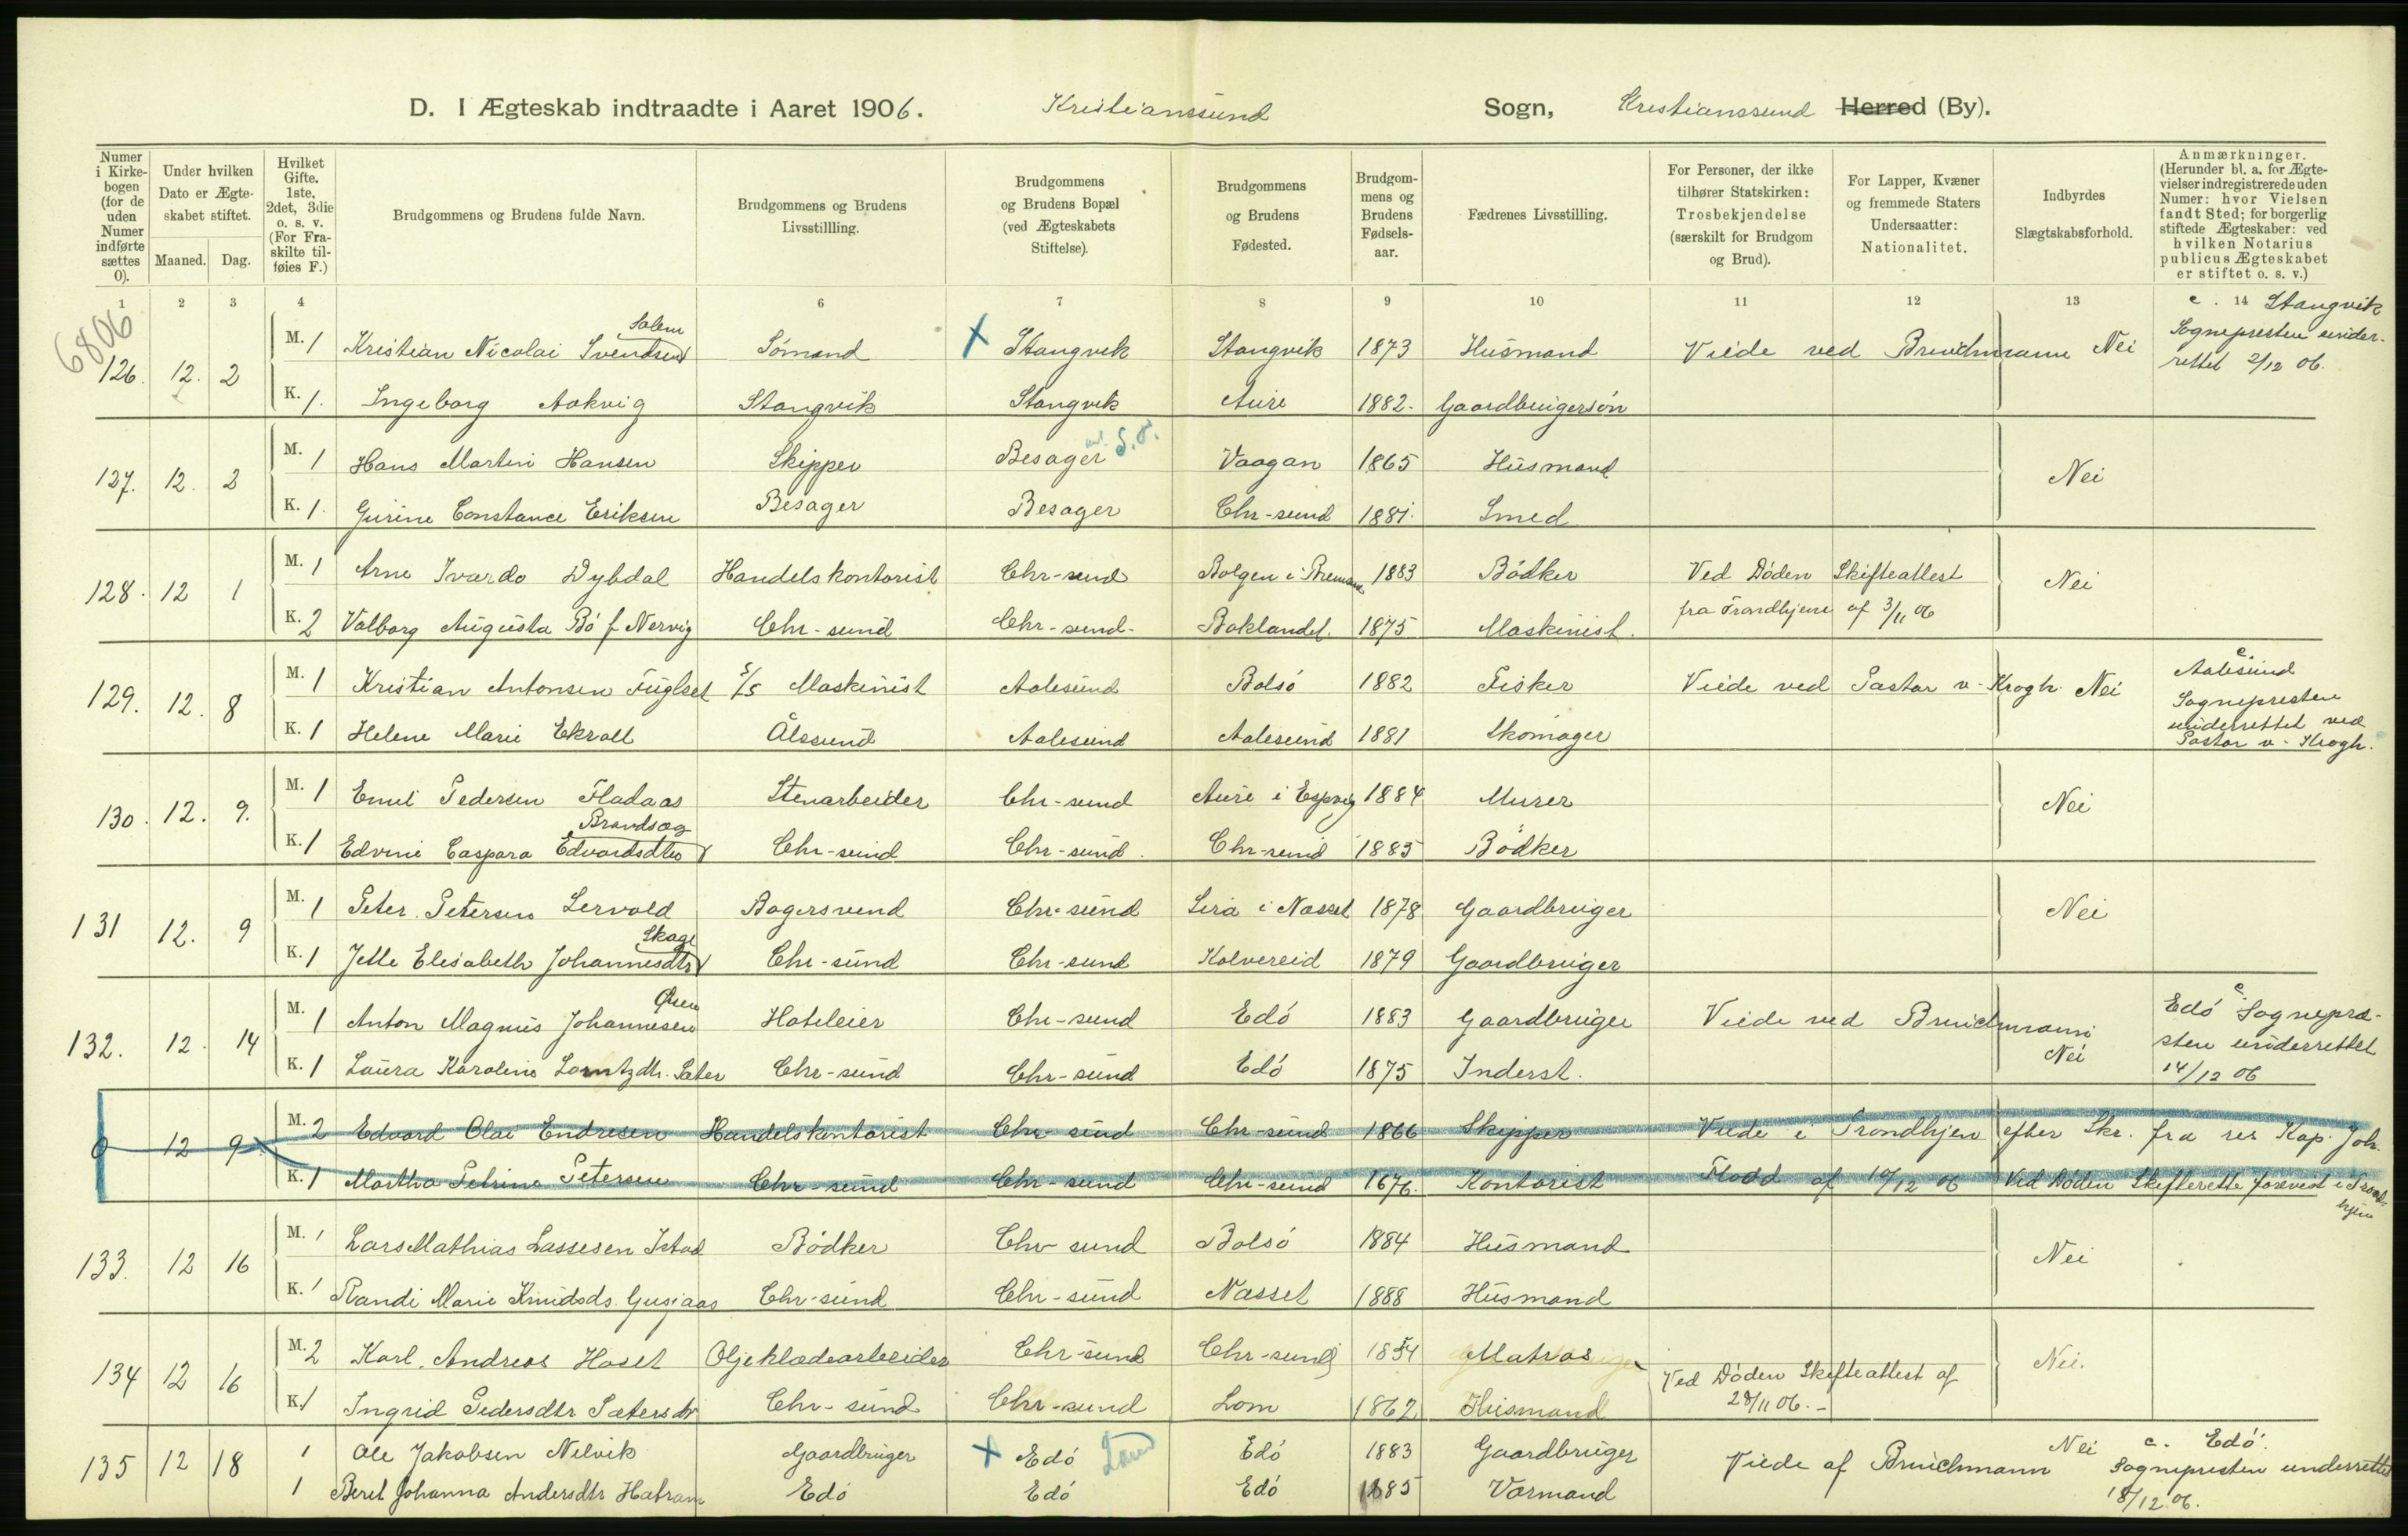 D. I Ægteskab indtraadte i Aaret 1906. Kristianssund Sogn, Kristianssund Herred (By).
Numer i Kirkebogen (for de uden Numer indførte sættes 0). Under hvilken Dato er Ægteskabet stiftet. Maaned. Dag. Hvilket Gifte. 1ste, 2det, 3die o. s. v. (For Fraskilte tilføies F.) Brudgommens og Brudens fulde Navn. Brudgommens og Brudens Livsstillling. Brudgommens og Brudens Bopæl (ved Ægteskabets Stiftelse). Brudgommens og Brudens Fødested. Brudgommens og Brudens Fødselsaar. Fædrenes Livsstilling. For Personer, der ikke tilhører Statskirken: Trosbekjendelse (særskilt for Brudgom og Brud). For Lapper, Kvæner og fremmede Staters Undersaatter: Nationalitet. Indbyrdes Slægtskabsforhold. Anmærkninger. (Herunder bl. a. for Ægtevielser indregistrerede uden Numer: hvor Vielsen fandt Sted; for borgerlig stiftede Ægteskaber: ved hvilken Notarius publicus Ægteskabet er stiftet o. s. v.)
1 2 3 4 6 7 8 9 10 11 12 13 14
6806
126. 12. 2 M. 1 Kristian Nicolai Svendsen Solem Sömand X Stangvik Stangvik 1873 Husmand Viede ved Bruichmann Nei c. Stangvik Sognepresten underrettet 2/12 06.
K. 1. Ingeborg Aakvig Stangvik Stangvik Aure 1882. Gaardbrugersön
127. 12. 2 M. 1 Hans Martin Hansen Skipper Besager Vaagan 1865 Husmand Nei
K. 1. Gurine Constance Eriksen Besager Besager Chr-sund 1881. Smed
128. 12 1 M. 1 Arne Ivardo Dybdal Handelskontorist Chr-sund Bolgen i 1883 Bödker Ved Döden Skifteattest Nei
K. 2 Valborg Augusta Bö f. Nervig Chr-sund Chr-sund. Baklandet. 1875 Maskinist. fra Trondhjem af 3/11 06
129. 12. 8 M. 1 Kristian Antonsen Fuglset S/S Maskinist Aalesund Bolsö 1882 Fisker Viede ved Pastor v. Krogh Nei c. Aalesund Sognepresten
K. 1 Helene Marie Ekroll Ålesund Aalesund Aalesund 1881 Skomager underrettet ved Pastor v. Krogh.
130. 12. 9. M. 1 Emil Pedersen Fladaas Stenarbeider Chr-sund Aure i 1884 Murer Nei
K. 1 Edvine Caspara Edvardsdtr Brandsøg Chr-sund Chr-sund. Chr-sund 1885 Bödker
131 12. 9 M. 1 Peter Petersen Lervold Bagersvend Chr-sund Lira i Nasset 1878 Gaardbruger Nei
K. 1 Jette Elesabeth Johannesdtr Skage Chr-sund Chr-sund Kolvereid 1879 Gaardbruger
132. 12. 14 M. 1 Anton Magnus Johannesen Hoteleier Chr-sund Edö 1883 Gaardbruger Viede ved Bruichmann Edö c. Sognepræsten underrettet
K. 1 Laura Karoline Lorntzdtr. Sæter Chr-sund Chr-sund Edö 1875 Inderst. Nei 14/12 06
0 12 9 M. 2 Edvard Olai Endresen Handelskontorist Chr-sund Chr-sund 1866 Skipper Viede i Trondhjem efter Skr. fra res Kap. Joh.
K. 1 Martha Petrine Petersen Chr-sund Chr-sund Chr-sund 1676. Kontorist Flodd af 10/12 06 Ved Döden Skifterette forevist i Trondhjem
133. 12 16 M. 1 Lars Mathias Lassesen Istad Bödker Chr sund Bolsö 1884 Husmand Nei
K. 1 Randi Marie Knudsds. Gusjaas Chr-sund Chr-sund Nasset 1888 Husmand
134 12 16 M. 2 Karl Andreas Haset Oljeklædearbeider Chr-sund Chr-sund 1854 Matros Ved Döden Skifteattest af Nei.
K. 1 Ingrid Pedersdtr Chr-sund Chr-sund Lom 1862 Husmand 28/11 06.-
135 12 18 1 Ole Jakobsen Nelvik Gaardbruger X Edö Edö 1883 Gaardbruger Viede af Bruichmann Nei c. Edö. Sognepresten underrettet
1 Beret Johanna Andersdtr Edö Edö Edö 1885 Varmand 18/12 06.